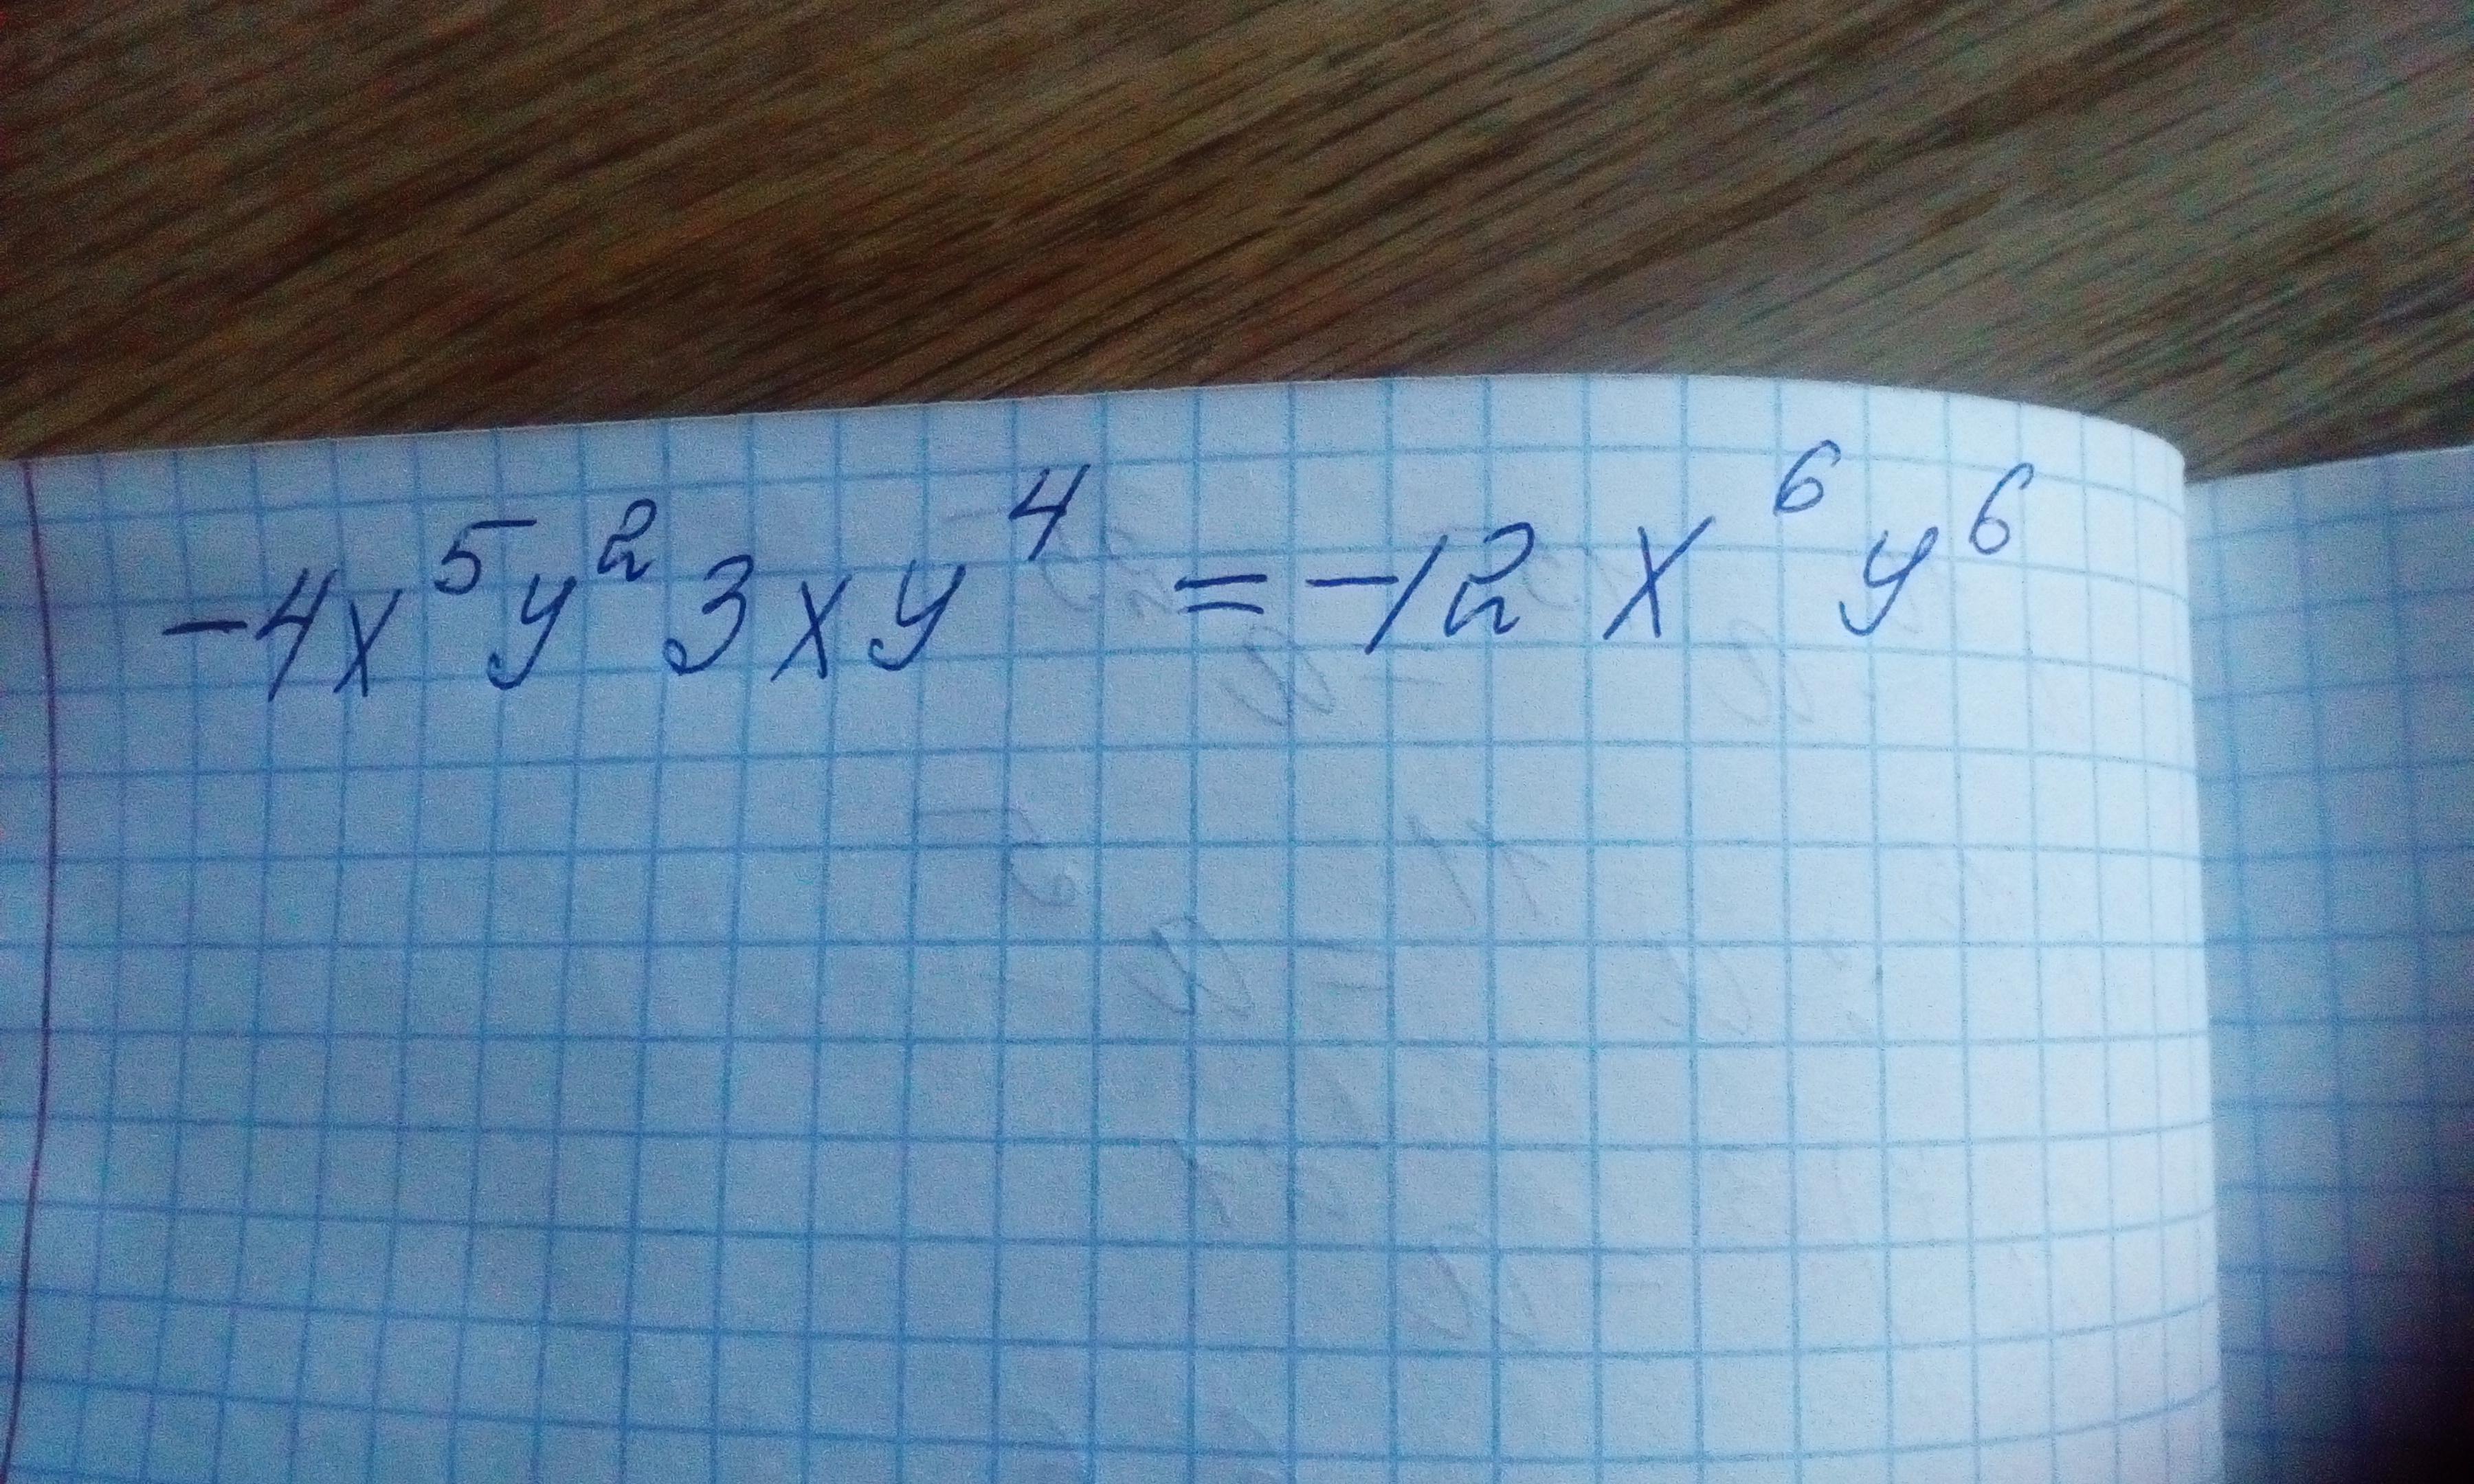 -4x⁵y²3xy⁴ = -12x⁶y⁶